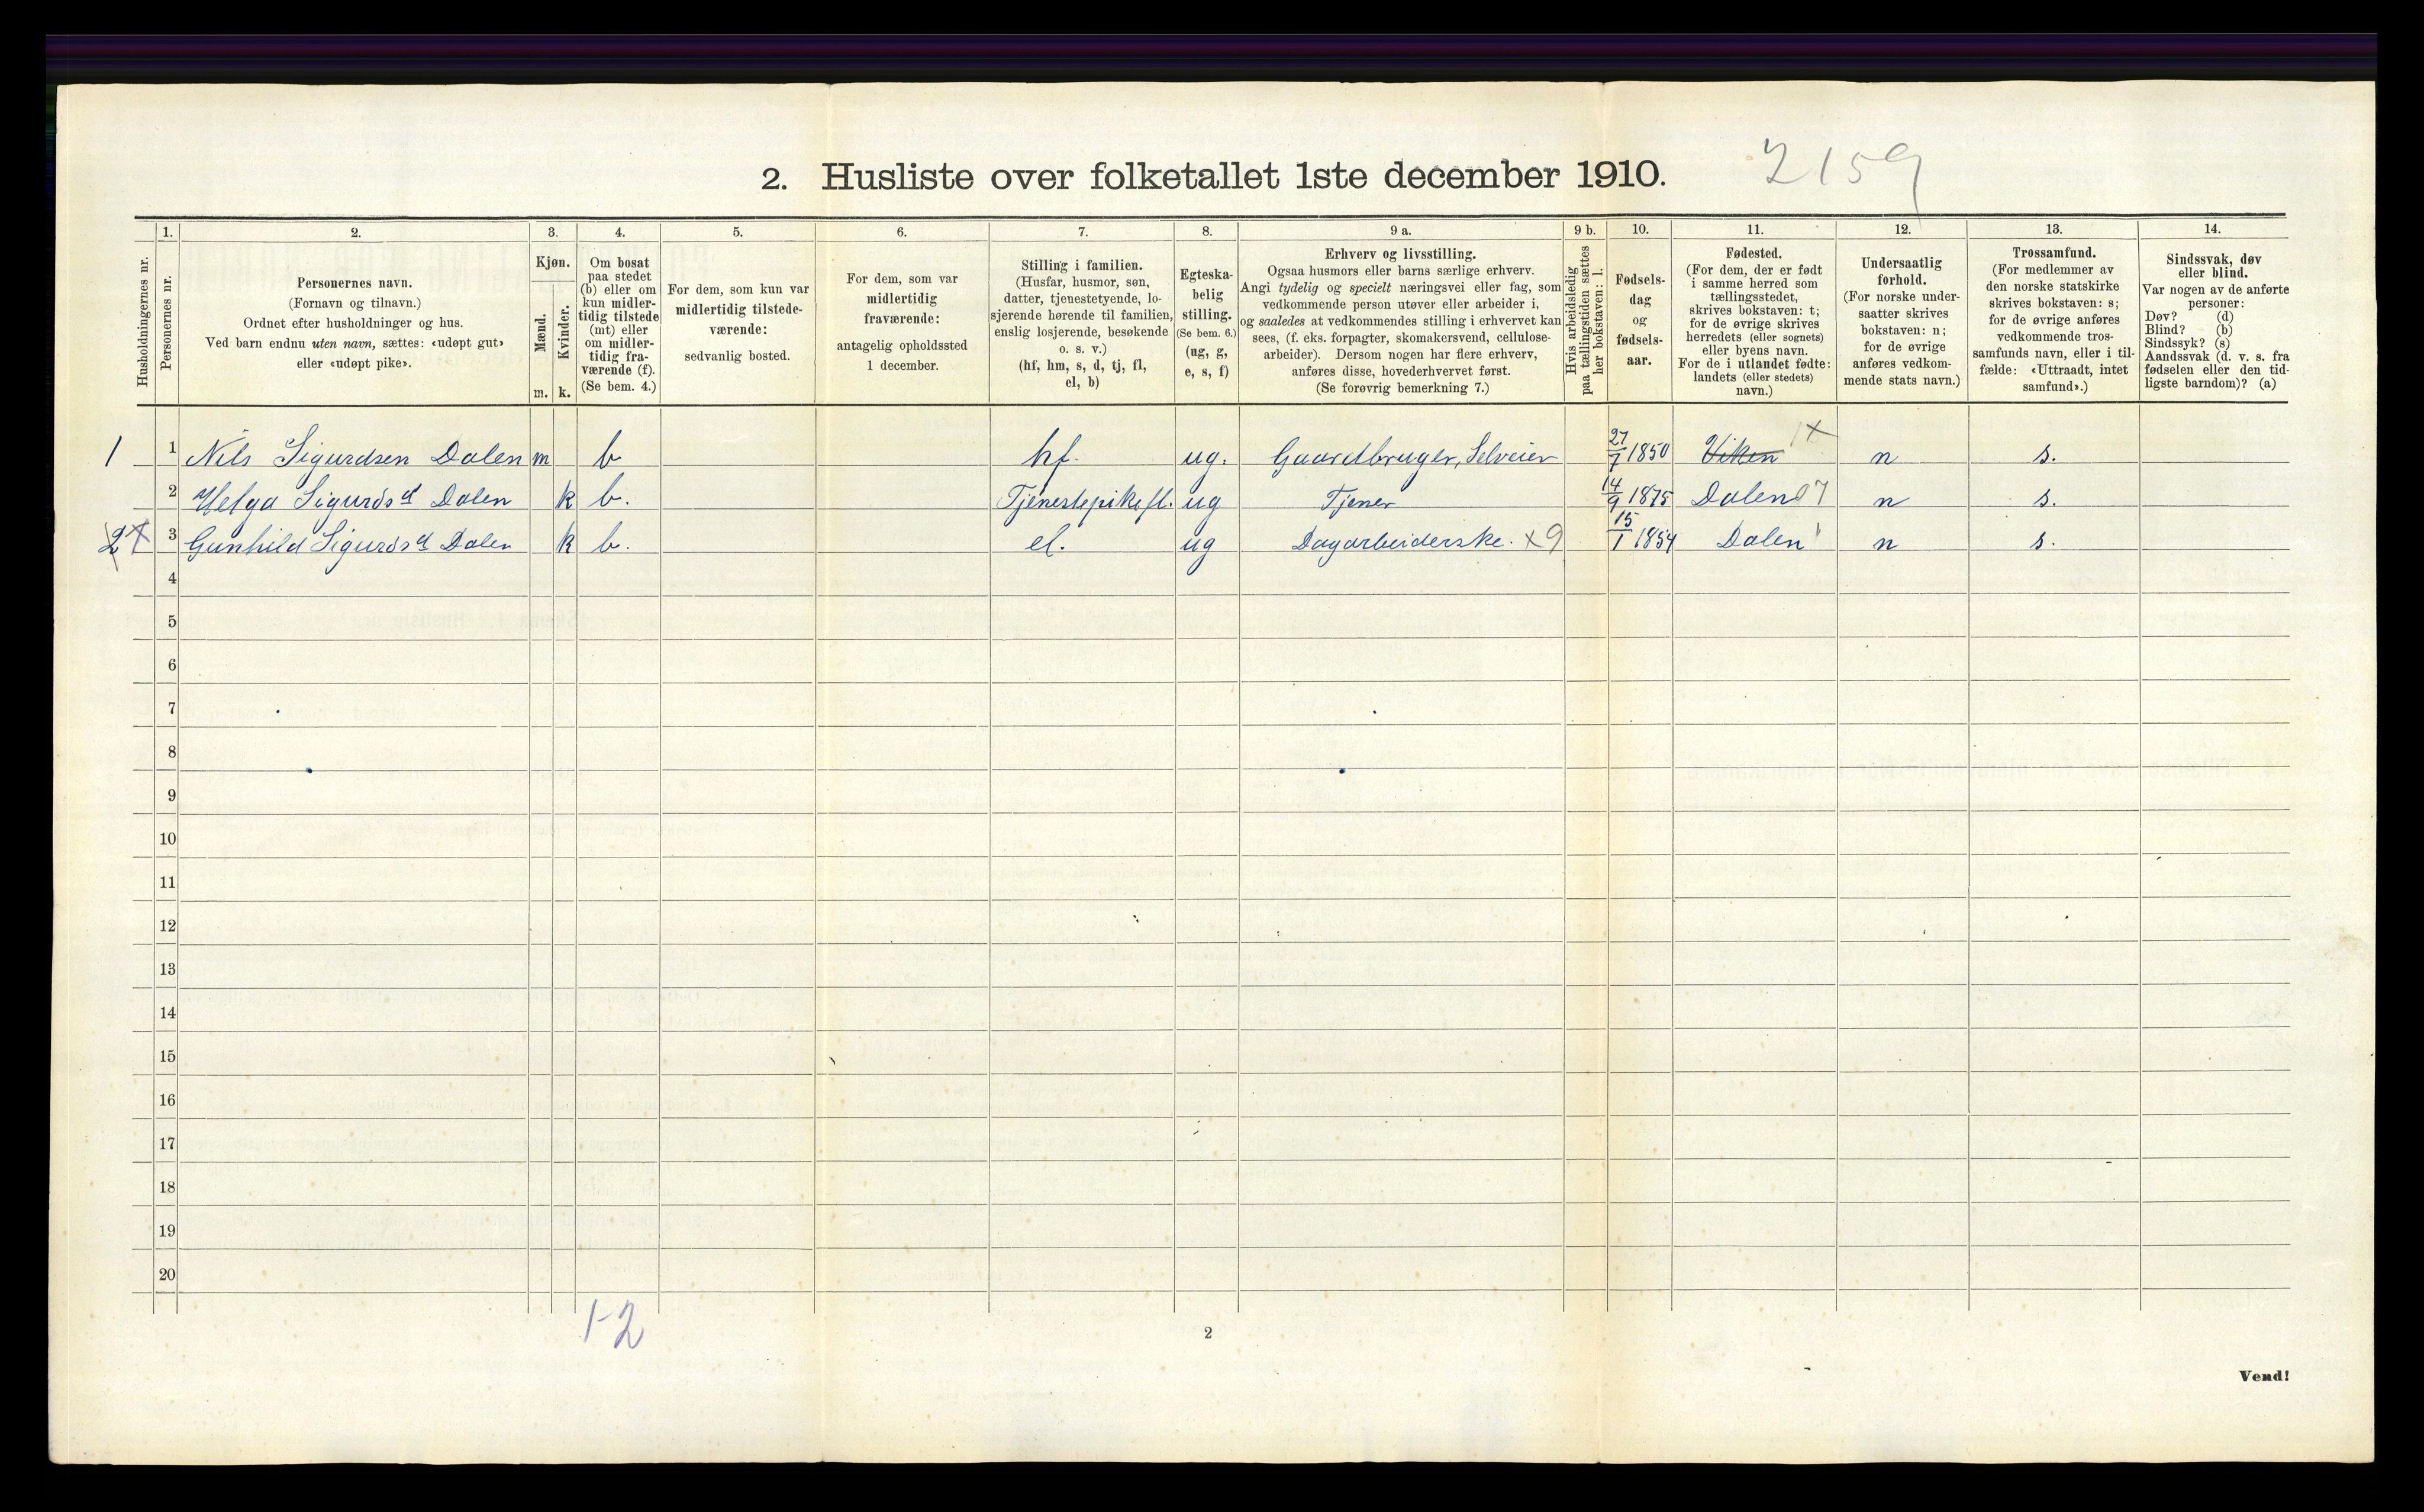 2. Husliste over folketallet 1ste december 1910. 2159
Husholdningernes nr.
1. Personernes nr.
2. Personernes navn.
(Fornavn og tilnavn.)
Ordnet efter husholdninger og hus.
Ved barn endnu uten navn, sættes: «udøpt gut»
eller «udøpt pike».
3. Kjøn.
Mænd. m.
Kvinder. k.
4. Om bosat
paa stedet
(b) eller om
kun midler-
tidig tilstede
(mt) eller
om midler-
tidig fra-
værende (f).
(Se bem. 4.)
5. For dem, som kun var
midlertidig tilstede-
værende:
sedvanlig bosted.
6. For dem, som var
midlertidig
fraværende:
antagelig opholdssted
1 december.
7. Stilling i familien.
(Husfar, husmor, søn,
datter, tjenestetyende, lo-
sjerende hørende til familien,
enslig losjerende, besøkende
o. s. v.)
(hf, hm, s, d, tj, fl,
el, b)
8. Egteska-
belig
stilling.
(Se bem. 6.)
(ug, g,
e, s, f)
9 a. Erhverv og livsstilling.
Ogsaa husmors eller barns særlige erhverv.
Angi tydelig og specielt næringsvei eller fag, som
vedkommende person utøver eller arbeider i,
og saaledes at vedkommendes stilling i erhvervet kan
sees, (f. eks. forpagter, skomakersvend, cellulose-
arbeider). Dersom nogen har flere erhverv,
anføres disse, hovederhvervet først.
(Se forøvrig bemerkning 7.)
9 b. Hvis arbeidsledig
paa tællingstiden sættes
her bokstaven: l.
10. Fødsels-
dag
og
fødsels-
aar.
11. Fødested.
(For dem, der er født
i samme herred som
tællingsstedet,
skrives bokstaven: t;
for de øvrige skrives
herredets (eller sognets)
eller byens navn.
For de i utlandet fødte:
landets (eller stedets)
navn.)
12. Undersaatlig
forhold.
(For norske under-
saatter skrives
bokstaven: n;
for de øvrige
anføres vedkom-
mende stats navn.)
13. Trossamfund.
(For medlemmer av
den norske statskirke
skrives bokstaven: s;
for de øvrige anføres
vedkommende tros-
samfunds navn, eller i til-
fælde: «Uttraadt, intet
samfund».)
14. Sindssvak, døv
eller blind.
Var nogen av de anførte
personer:
Døv? (d)
Blind? (b)
Sindssyk? (s)
Aandssvak (d. v. s. fra
fødselen eller den tid-
ligste barndom)? (a)
1 1 Nils Sigurdsen Dalen m b hf. ug. Gaardbruger, Selveier 27/7 1850 Viken n s.
2 Helga Sigurdsd Dalen k b. Tjenestepike fl. ug Tjener 14/9 1875 Dalen 07 n s.
2 3 Gunhild Sigurdsd Dalen k b. el. ug Dagarbeiderske. x9 15/1 1854 Dalen n s.
4
5
6
7
8
9
10
11
12
13
14
15
16
17
18
19
20
1-2
2
Vend!